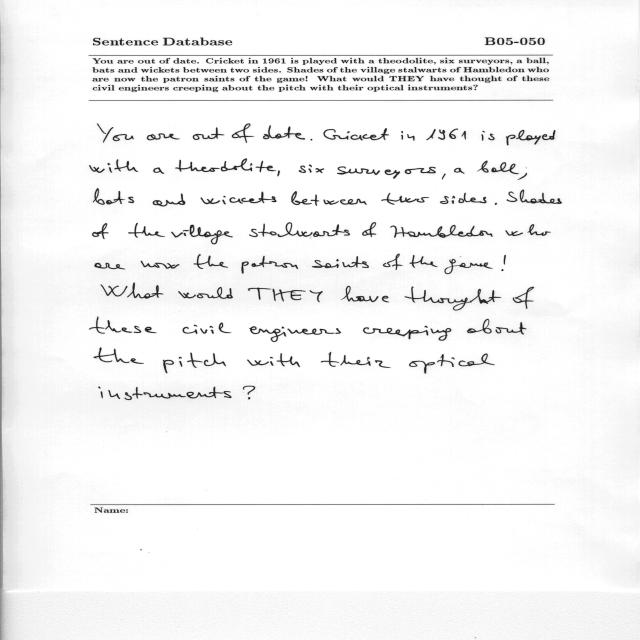 Sentence Database B05-050
You are out of date. Cricket in 1961 is played with a theodolite, six surveyors, a ball,
bats and wickets between two sides. Shades of the village stalwarts of Hambledon who
are now the patron saints of the game! What would THEY have thought of these
civil engineers creeping about the pitch with their optical instruments?
You are out of date. Cricket in 1961 is played
with a theodolite, six surveyors, a ball,
bats and wickets between two sides. Shades
of the village stalwarts of Hambledon who
are now the patron saints of the game!
What would THEY have thought of
these civil engineers creeping about
the pitch with their optical
instruments?
Name: